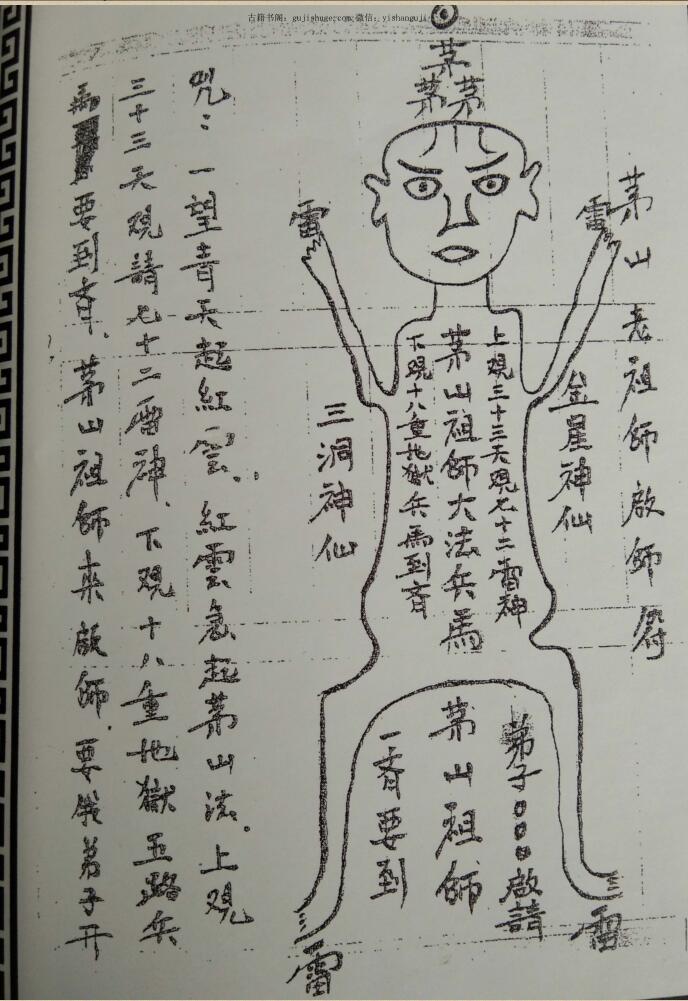 古籍书阁：gujishuge.com;微信：yishanguji
茅山老祖師啟師符
茅
茅茅
雷
雷
金星神仙
上覌三十三天覌七十二雷神
茅山祖師大法兵馬
下覌十八重地獄兵馬到斉
三洞神仙
弟子〇〇〇啟請
茅山祖師
一斉要到
雷
雷
咒：一望青天起紅雲、紅雲急起茅山法、上覌
三十三天覌請七十二雷神、下覌十八重地獄五路兵
馬要到斉、茅山祖師来啟師、要俄弟子开